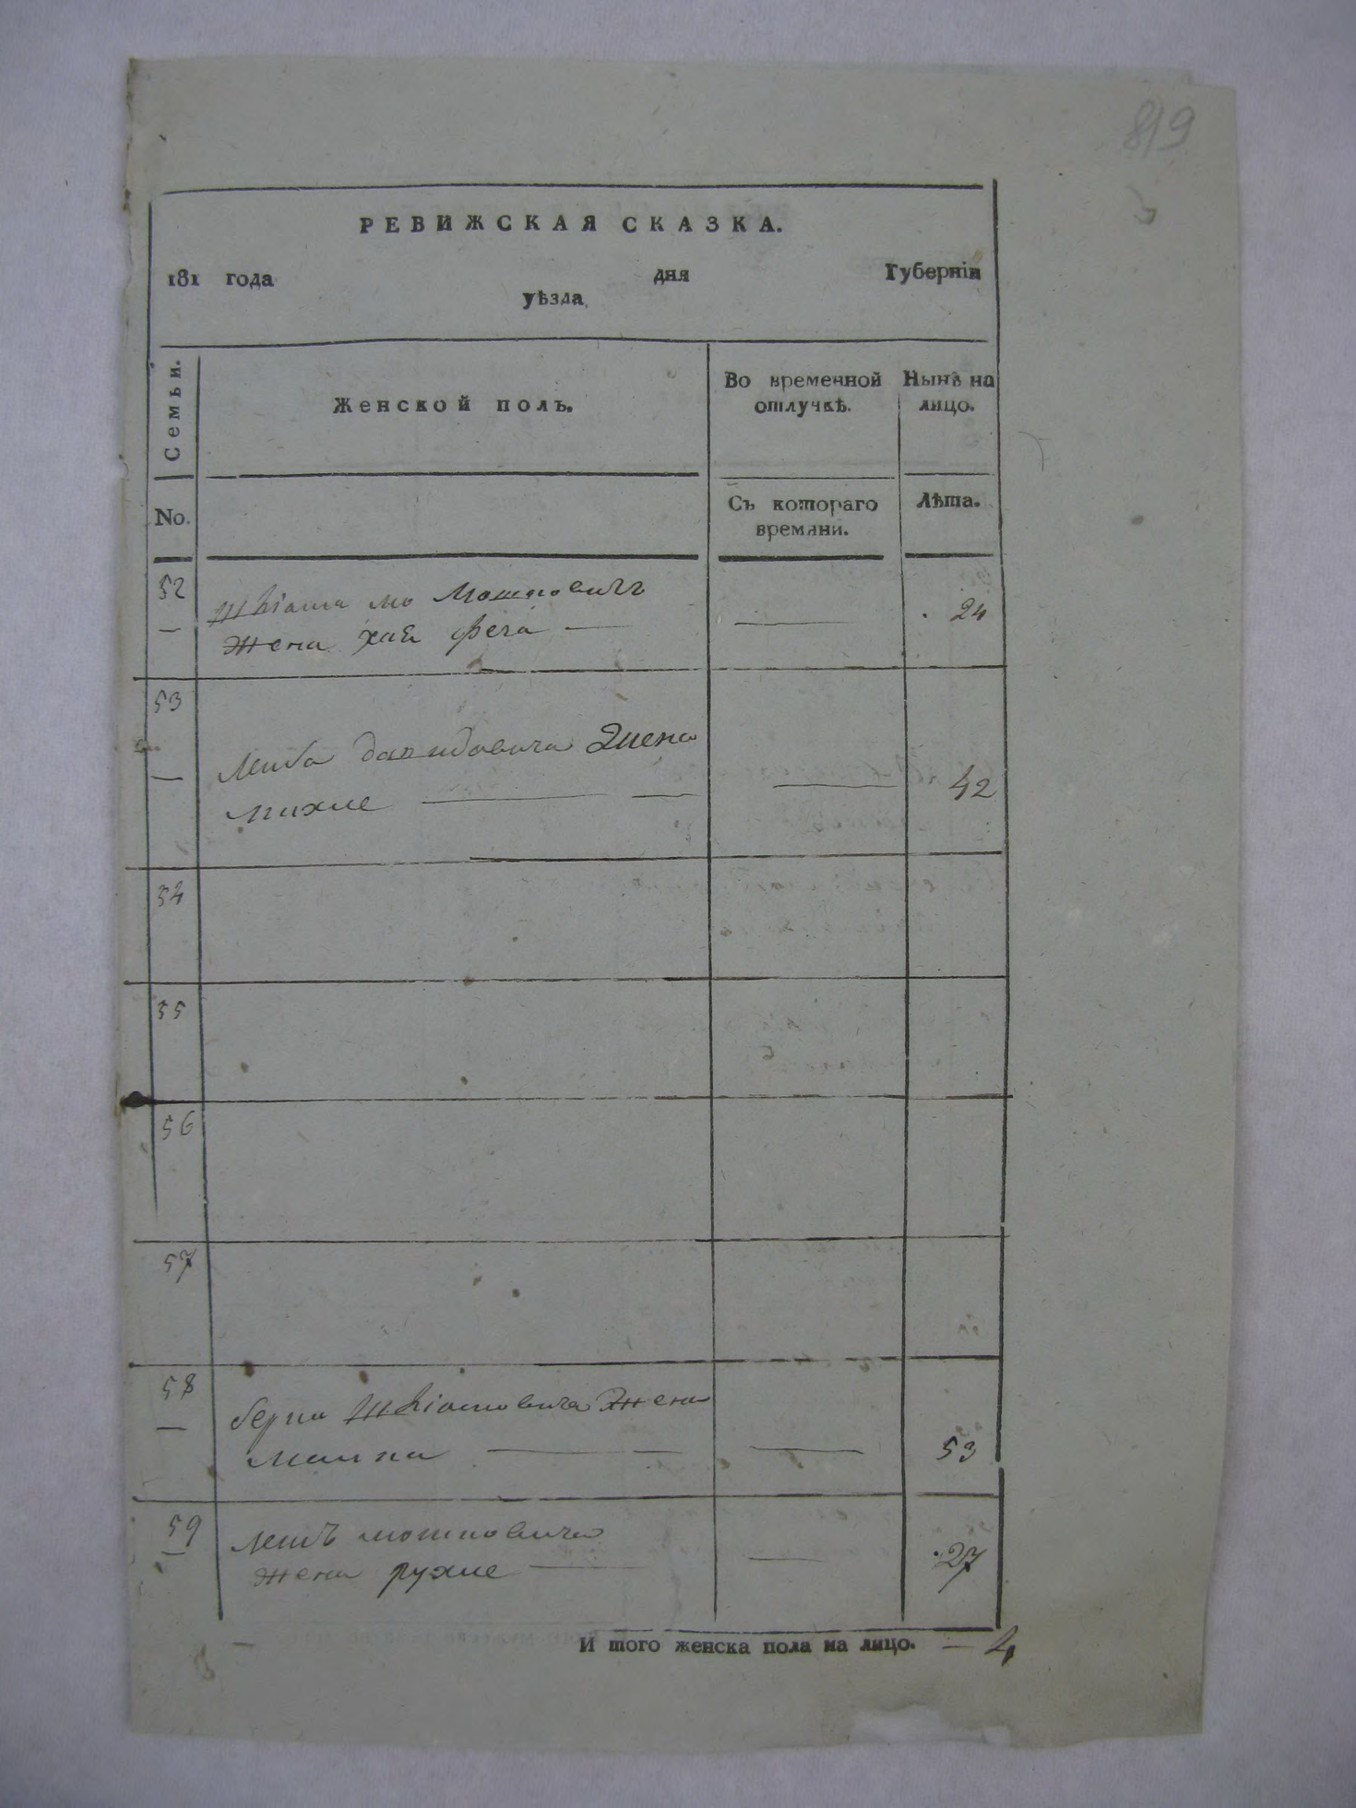 819
РЕВИЖСКАЯ СКАЗКА.
181 года дня Губерніи
уѣзда
Семьи. Женской полъ. Во временной отлучкѣ. Нынѣ на лицо.
No. Съ котораго времяни. Лѣта.
52
мо Мошковичъ
жена хая — 24
53
Лейба давидовича жена
михле — 42
54
55
56
57
58
берка жена
малка — 53
59
мошковича
жена рухле — 27
И того женска пола на лицо. — 4